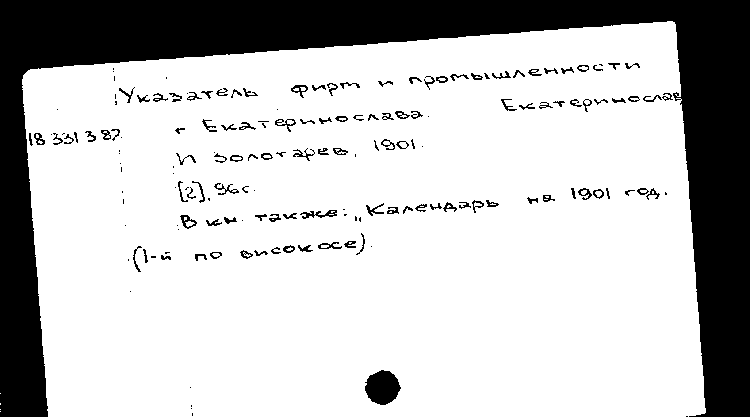 Указатель фирм и промышленности
18 331 3 87 г Екатеринослава. Екатеринослав
И Золотарев, 1901.
[2], 96 с.
В кн. также: „Календарь на 1901 год.
(1-й по високосе).